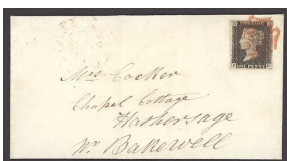 POSTAGE
ONE PENNY
Mrs Cocker
Chapel Cottage
Hathersage
Nr Bakewell